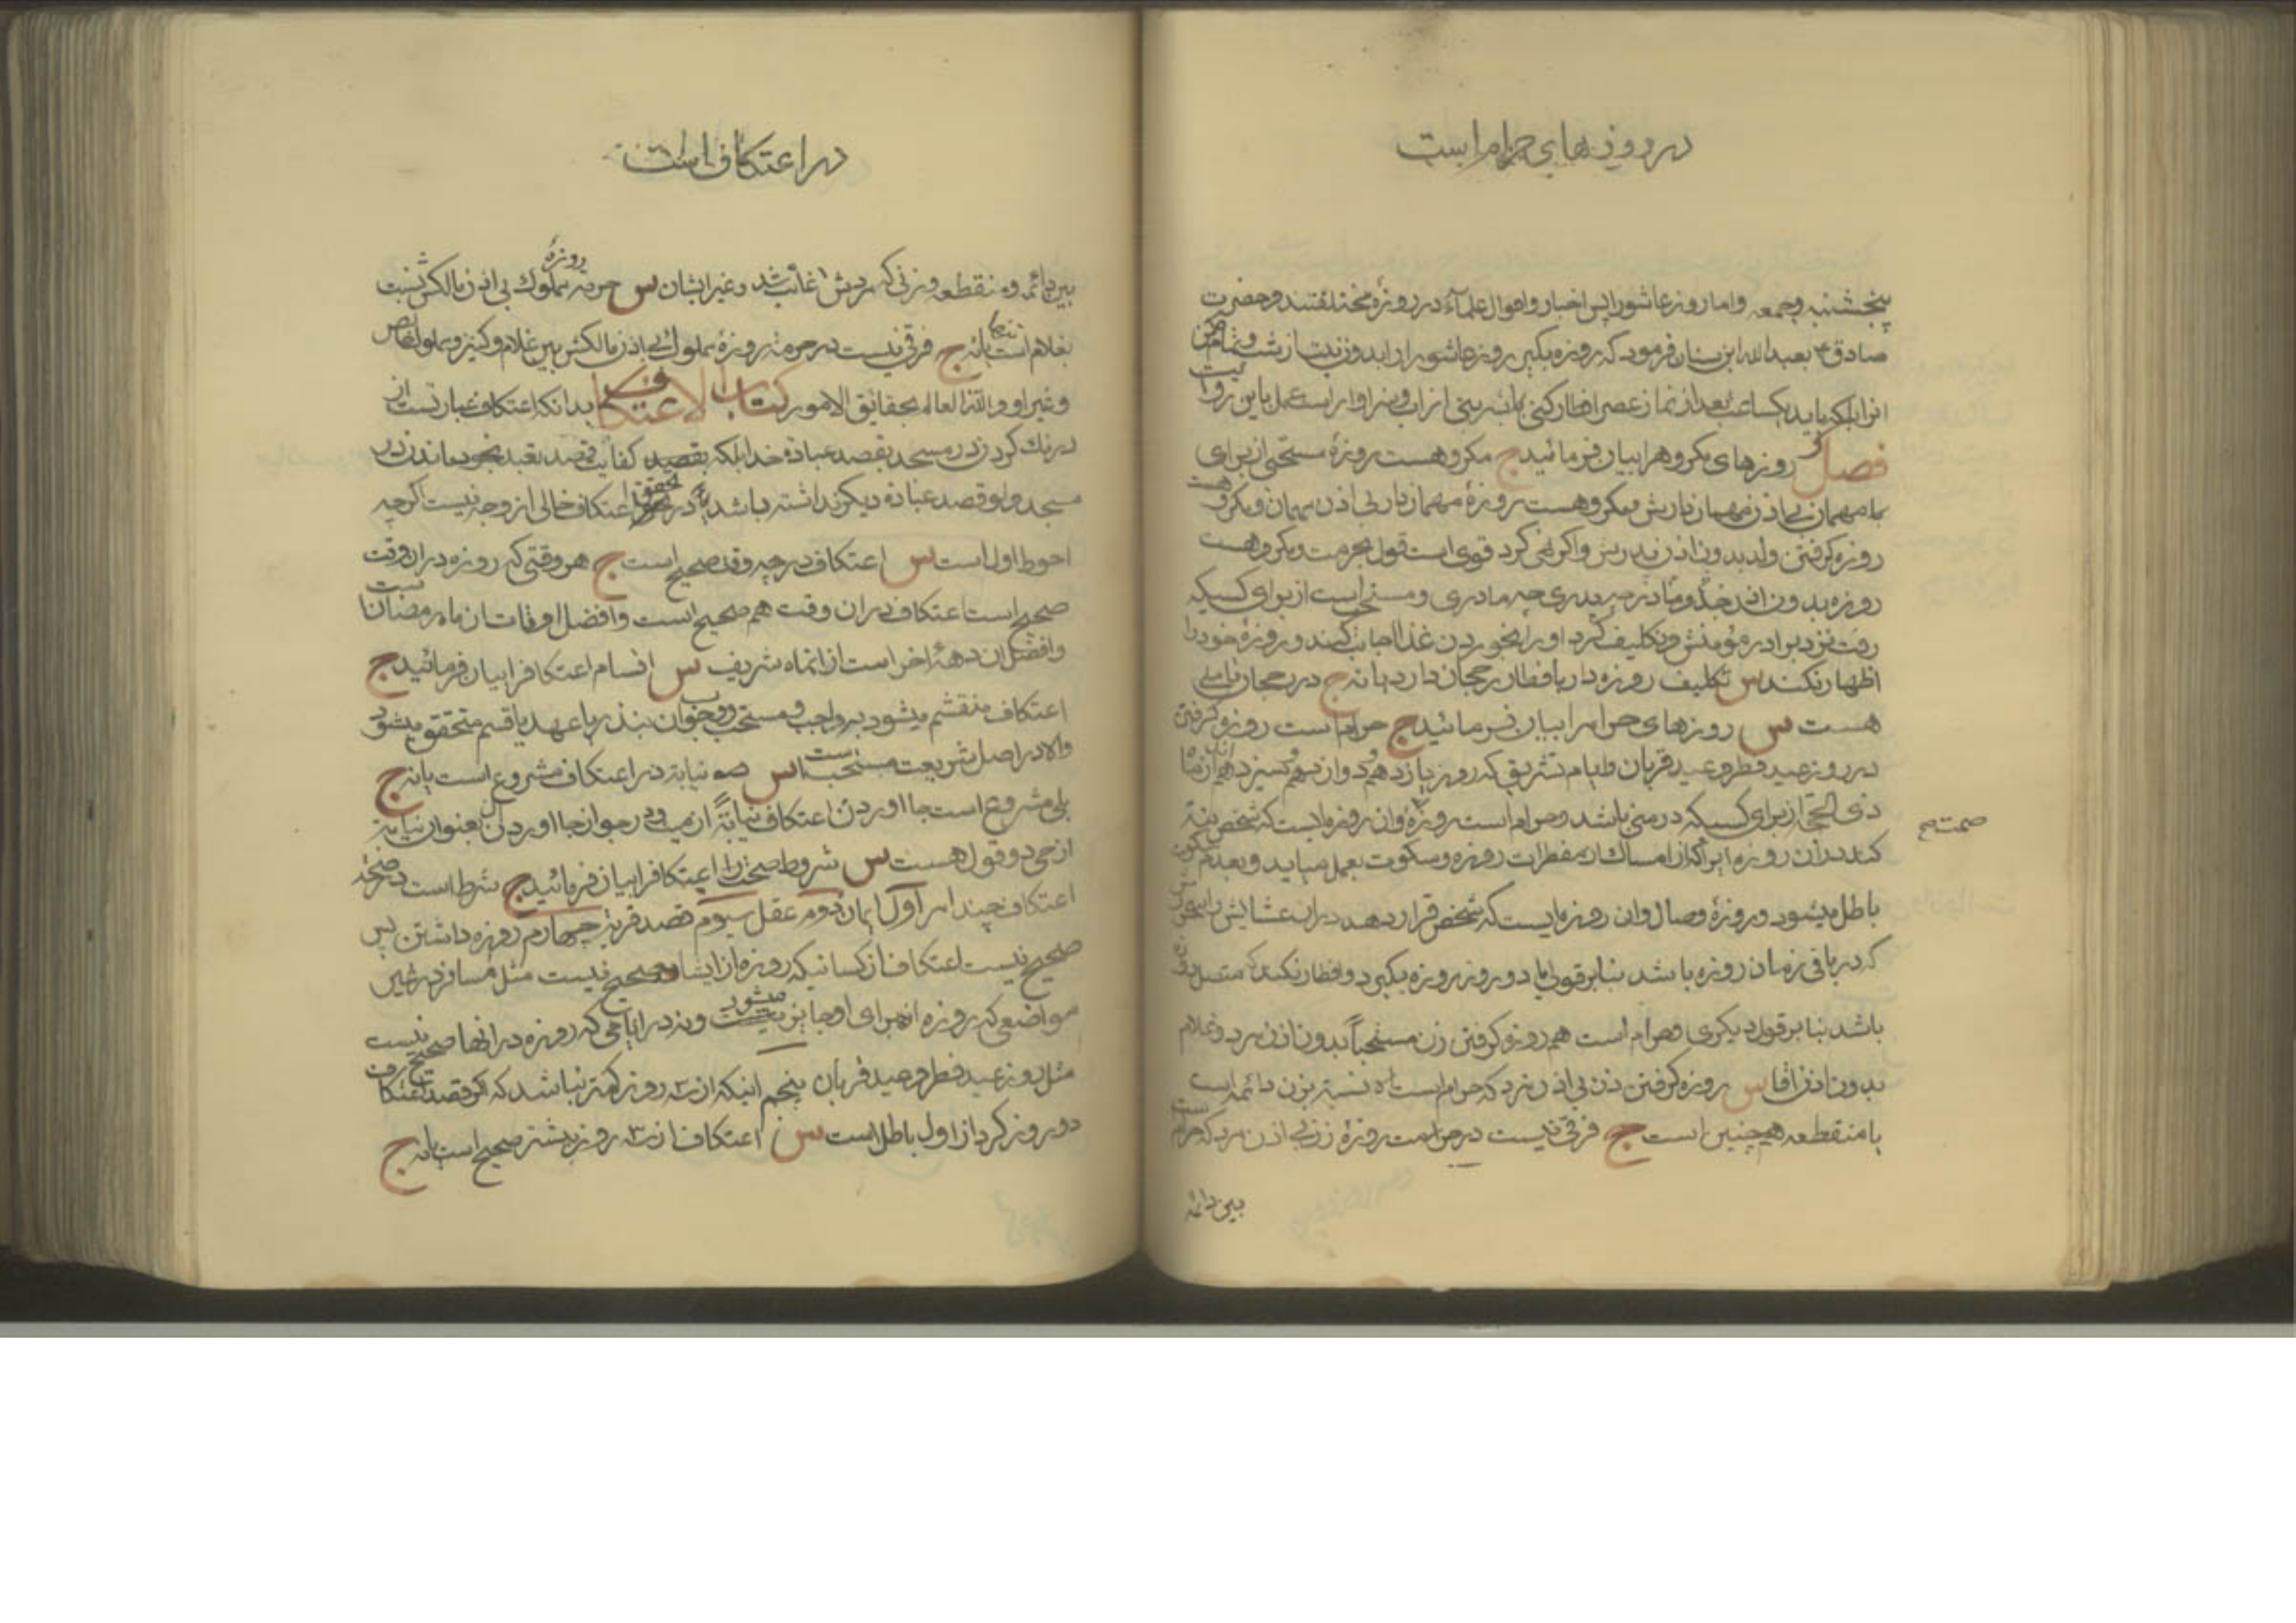 در روزهای حرام است
پنجشنبه و جمعه و اما روز عاشورا پس اخبار و اقوال علماء در روزه مختلفتند و حضرت
صادق ع بعبدالله ابن سنان فرمود که روزه بگیر روز عاشورا را بدون نیت از شب و تمام مکن
انرا بلکه باید یکساعت بعد از نماز عصر افطار کنی بشربتی از اب و سزاوار است عمل باین روایت
فصل روزهای مکروه را بیان فرمائید ج مکروهست روزهٔ مستحبی از برای
مهمان بی اذن مهماندارش و مکروهست روزهٔ مهماندار بی اذن مهمان و مکروهست
روزه کرفتن ولد بدون اذن پدرش و اکر نهی کرد قوی است قول بحرمت و مکروهست
روزه بدون اذن جد و مادر چه پدری چه مادری و مستحب است از برای کسیکه
رفت نزد برادر مؤمنش و تکلیف کرد او را بخوردن غذا اجابت کند و روزهٔ خود را
اظهار نکند س تکلیف روزه دار بافطار رجحان دارد یا نه ج در رجحان تاملی
هست س روزهای حرام را بیان فرمائید ج حرام است روزه کرفتن
در روز عید فطر و عید قربان و ایام تشریق که روز یازدهم و دوازدهم و سیزدهم از ماه
ذی الحجه از برای کسیکه در منی باشد و حرام است روزهٔ وان روزه ایست که شخص نیة
صمت صح
کند در ان روزه امساک از مفطرات روزه و سکوت بعمل میاید و بعدم سکوت
باطل میشود و روزهٔ وصال وان روزه ایست که شخص قرار دهد در ان عشایش را سحرش
که در باقی زمان روزه باشد بنابر قولی یا دو روز روزه بگیرد و افطار نکند که متصل بهم
باشد بنا بر قول دیکری و حرام است هم روزه کرفتن زن مستحباً بدون اذن مرد و غلام
بدون اذن اقا س روزه کرفتن زن بی اذن مرد که حرام است نسبة بزن دائمه است
یا منقطعه هم چنین است ج فرقی نیست در حرمت روزهٔ زن بی اذن مرد که حرام است
بین دائمه
در اعتکاف است
بین دائمه و منقطعه و زنی که مردش غائب باشد و غیر ایشان س حرمة روزهٔ مملوک بی اذن مالکش نسبت
بغلام است تنها یا نه ج فرقی نیست در حرمة روزهٔ مملوک بی اذن مالکش بین غلام و کنیز و مملوک خالص
و غیر او والله العالم بحقایق الامور کتاب الاعتکاف بدانکه اعتکاف عبارتست از
درنک کردن در مسجد بقصد عبادة خدا بلکه کفایت قصد تعبد بخود ماندن در
مسجد ولو قصد عبادة دیکر نداشته باشد در تحقق اعتکاف خالی از وجه نیست اکر چه
احوط اول است س اعتکاف در چه وقت صحیح است ج هر وقتی که روزه در ان وقت
صحیح است اعتکاف در ان وقت هم صحیح است و افضل اوقات ان ماه رمضان است
و افضل ان دههٔ اخر است از انماه شریف س اقسام اعتکاف را بیان فرمائید ج
اعتکاف منقسم میشود بر واجب و مستحب و وجوب ان بنذر یا عهد یا قسم متحقق میشود
والا در اصل شریعت مستحب است س نیابة در اعتکاف مشروع است یا نه ج
بلی مشروع است بجا اوردن اعتکاف نیابةً از میت و در جواز بجا اوردن ان بعنوان نیابة
از حی دو قول هست س شروط صحت اعتکاف را بیان فرمائید ج شرط است در صحة
اعتکاف چند امر اول ایمان دوم عقل سیوم قصد قربة چهارم روزه داشتن پس
صحیح نیست اعتکاف از کسانیکه روزه از ایشان صحیح نیست مثل مسافر در غیر
مواضعی که روزه از برای او جایز میشود و نه در ایامی که روزه در انها صحیح نیست
مثل روز عید فطر و عید قربان پنجم اینکه از سه روز کمتر نباشد که اکر قصد اعتکاف
دو روز کرد از اول باطل است س اعتکاف از سه روز بیشتر صحیح است یا نه ج